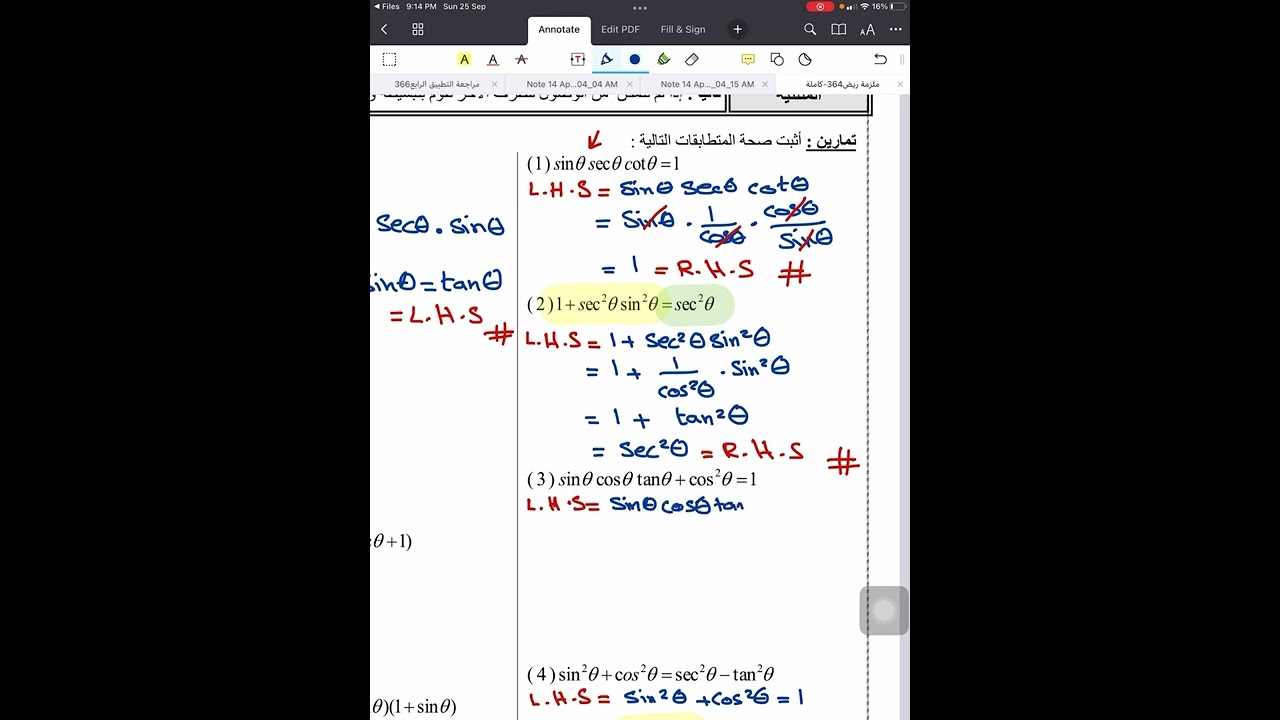 Files 9:14 PM Sun 25 Sep 16%
Annotate Edit PDF Fill & Sign
مراجعة التطبيق الرابع366 Note 14 Ap...04_04 AM Note 14 Ap..._04_15 AM ملزمة ريض364-كاملة
تمارين : أثبت صحة المتطابقات التالية :
(1) sinθ secθ cotθ = 1
L.H.S = sinθ secθ cotθ
= sinθ · 1/cosθ · cosθ/sinθ
= 1 = R.H.S #
(2) 1 + sec²θ sin²θ = sec²θ
L.H.S = 1 + sec²θ sin²θ
= 1 + 1/cos²θ · sin²θ
= 1 + tan²θ
= sec²θ = R.H.S #
(3) sinθ cosθ tanθ + cos²θ = 1
L.H.S = sinθ cosθ tan
(4) sin²θ + cos²θ = sec²θ − tan²θ
L.H.S = sin²θ + cos²θ = 1
secθ . sinθ
sinθ = tanθ
= L.H.S #
θ + 1)
θ)(1 + sinθ)